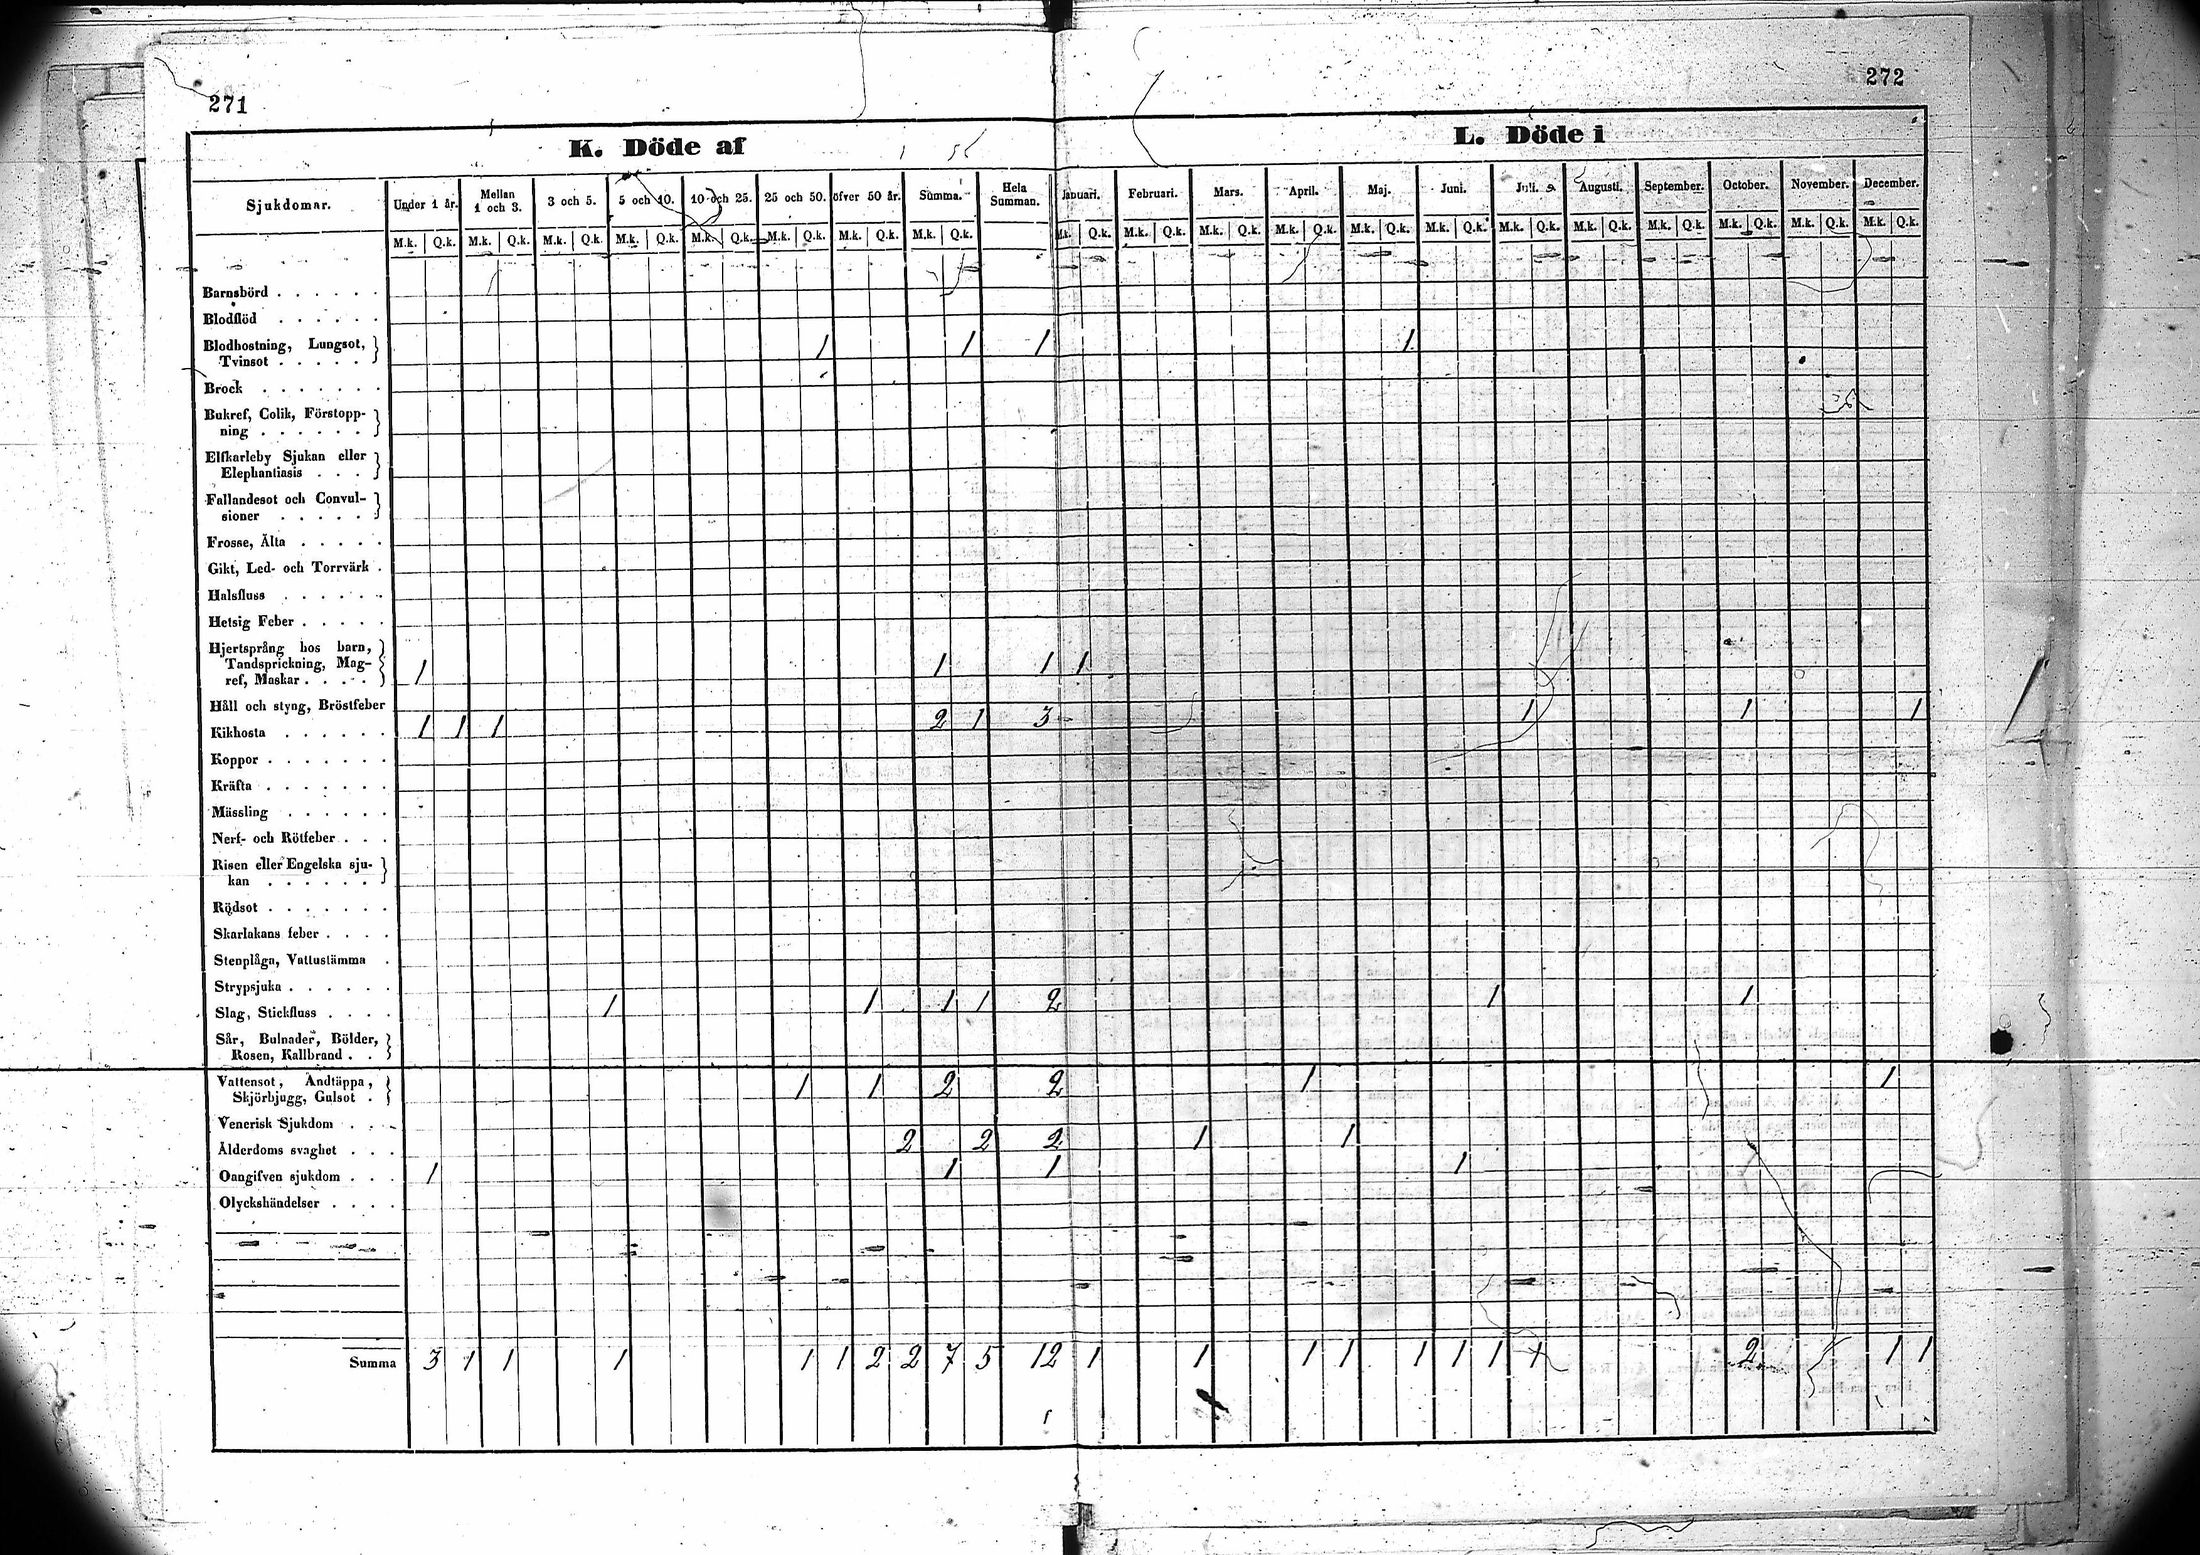 271
272
K. Döde af
L. Döde i
Sjukdomar. Under 1 år. Mellan 1 och 3. 3 och 5. 5 och 10. 10 och 25. 25 och 50. öfver 50 år. Summa. Hela Summan. Januari. Februari. Mars. April. Maj. Juni. Juli. Augusti. September. October. November. December.
M.k. Q.k. M.k. Q.k. M.k. Q.k. M.k. Q.k. M.k. Q.k. M.k. Q.k. M.k. Q.k. M.k. Q.k. M.k. Q.k. M.k. Q.k. M.k. Q.k. M.k. Q.k. M.k. Q.k. M.k. Q.k. M.k. Q.k. M.k. Q.k. M.k. Q.k. M.k. Q.k. M.k. Q.k. M.k. Q.k.
Barnsbörd . . . . . .
Blodflöd . . . . . .
Blodhostning, Lungsot, 1 1 1 1
Tvinsot . . . . .
Brock . . . . . . .
Bukref, Colik, Förstopp-
ning . . . . . .
Elfkarleby Sjukan eller
Elephantiasis . . .
Fallandesot och Convul-
sioner . . . . .
Frosse, Älta . . . . .
Gikt, Led- och Torrvärk .
Halsfluss . . . . . .
Hetsig Feber . . . . .
Hjertsprång hos barn,
Tandsprickning, Mag- 1 1 1 1
ref, Maskar . . . .
Håll och styng, Bröstfeber
Kikhosta . . . . . . 1 1 1 2 1 3 1 1 1
Koppor . . . . . . .
Kräfta . . . . . . .
Mässling . . . . . .
Nerf- och Rötfeber . . .
Risen eller Engelska sju-
kan . . . . . .
Rödsot . . . . . . .
Skarlakans feber . . . .
Stenplåga, Vattustämma .
Strypsjuka . . . . . .
Slag, Stickfluss . . . . 1 1 1 1 2 1 1
Sår, Bulnader, Bölder,
Rosen, Kallbrand . .
Vattensot, Andtäppa, 1 1 2 2 1 1
Skjörbjugg, Gulsot .
Venerisk Sjukdom . . .
Ålderdoms svaghet . . . 2 2 2 1 1
Oangifven sjukdom . . . 1 1 1 1
Olyckshändelser . . . .
Summa 3 1 1 1 1 1 2 2 7 5 12 1 1 1 1 1 1 1 1 2 1 1